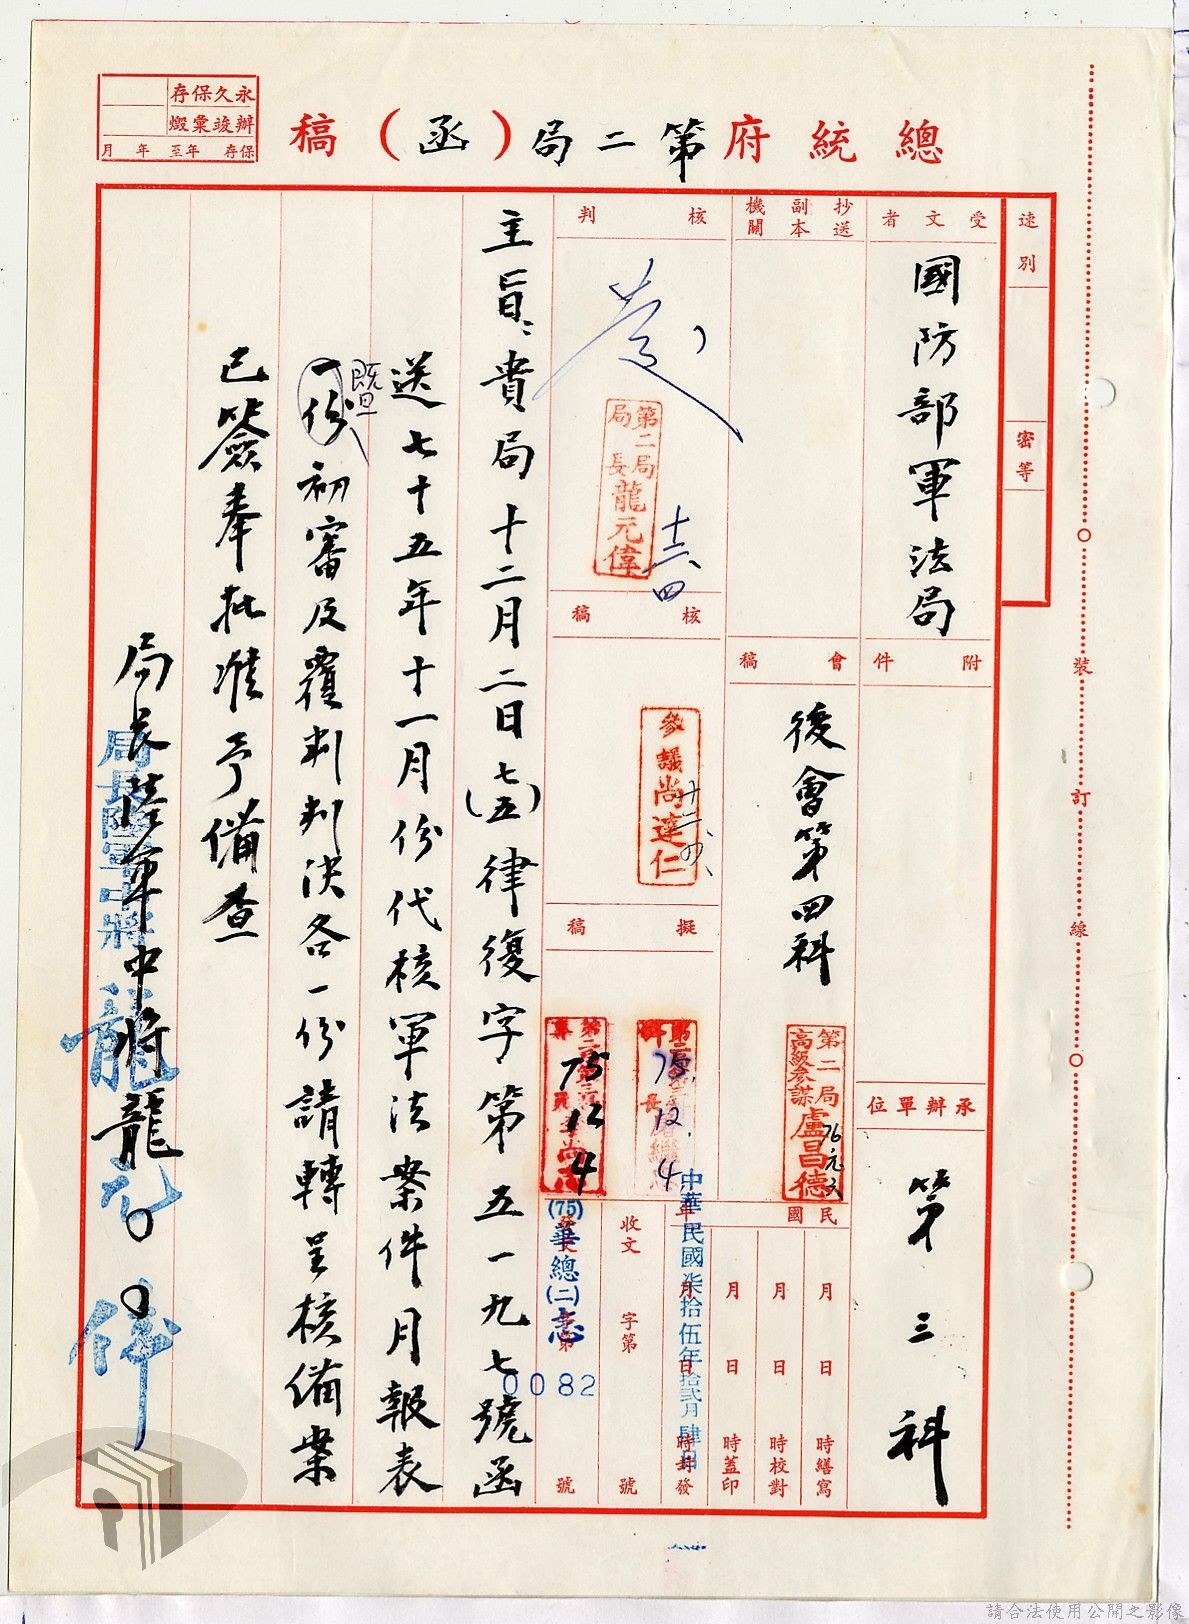 總統府第二局(函)稿
永久保存
辦竣彙燬
保存 年至 年 月
速別
密等
受文者
國防部軍法局
抄送副本機關
附件
會稿
後會第四科
第二局高級參謀盧昌德
76元
承辦單位
第三科
核判
第二局局長龍元偉
十二四
核稿
參議尚達仁
擬稿
75.12.4
75 12 4
民國
月 日 時繕寫
月 日 時校對
月 日 時蓋印
月 日 時封發
中華民國柒拾伍年拾貳月肆日
收文 字第 號
(75)華總(二)志
0082
號
主旨:貴局十二月二日(七五)律復字第五一九七號函
送七十五年十一月份代核軍法案件月報表
一份初審及覆判判決各一份請轉呈核備案
既旦
已簽奉批准予備查
局長陸軍中將龍○○
局長陸軍中將龍元偉
裝訂線
請合法使用公開之影像